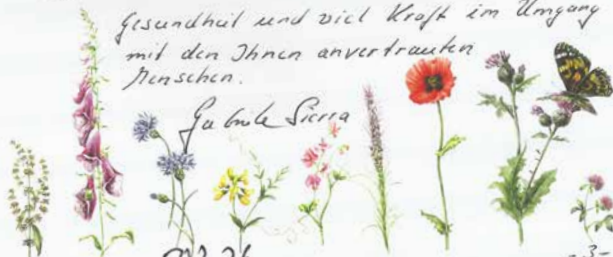 Gesundheit und viel Kraft im Umgang
mit den Ihnen anvertrauten
Menschen.
Gabriele Sierra
-3-